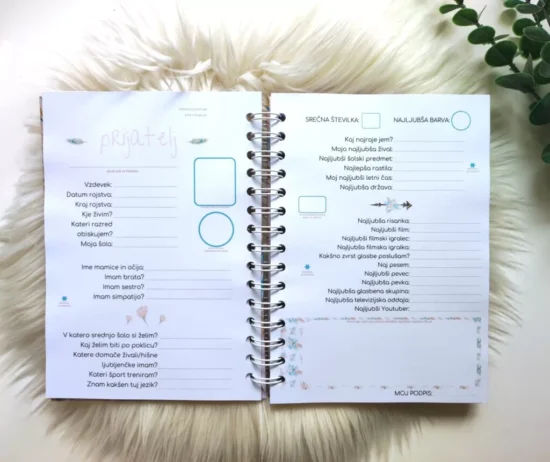 prijatelj
Vzdevek:
Datum rojstva:
Kraj rojstva:
Kje živim?
Kateri razred
obiskujem?
Moja šola:
Ime mamice in očija:
Imam brata?
Imam sestro?
Imam simpatijo?
V katero srednjo šolo si želim?
Kaj želim biti po poklicu?
Katere domače živali/hišne
ljubljenčke imam?
Kateri šport treniram?
Znam kakšen tuj jezik?
SREČNA ŠTEVILKA:
NAJLJUBŠA BARVA:
Kaj najraje jem?
Moja najljubša žival:
Najljubši šolski predmet:
Najlepša rastlina:
Moj najljubši letni čas:
Najljubša država:
Najljubša risanka:
Najljubši film:
Najljubši filmski igralec:
Najljubša filmska igralka:
Kakšno zvrst glasbe poslušam?
Naj pesem:
Najljubši pevec:
Najljubša pevka:
Najljubša glasbena skupina:
Najljubša televizijska oddaja:
Najljubši Youtuber:
MOJ PODPIS: